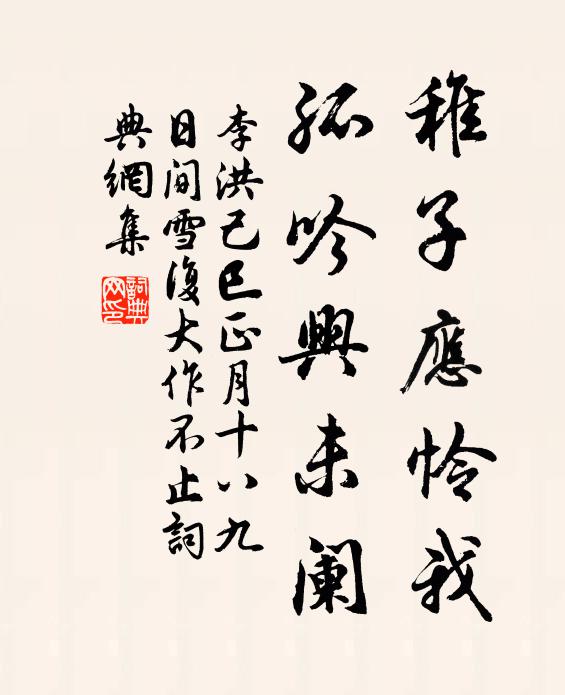 稚子應怜我
孤吟興未阑
李洪己巳正月十八九
日间雪復大作不止詞
典網集
詞典
网印